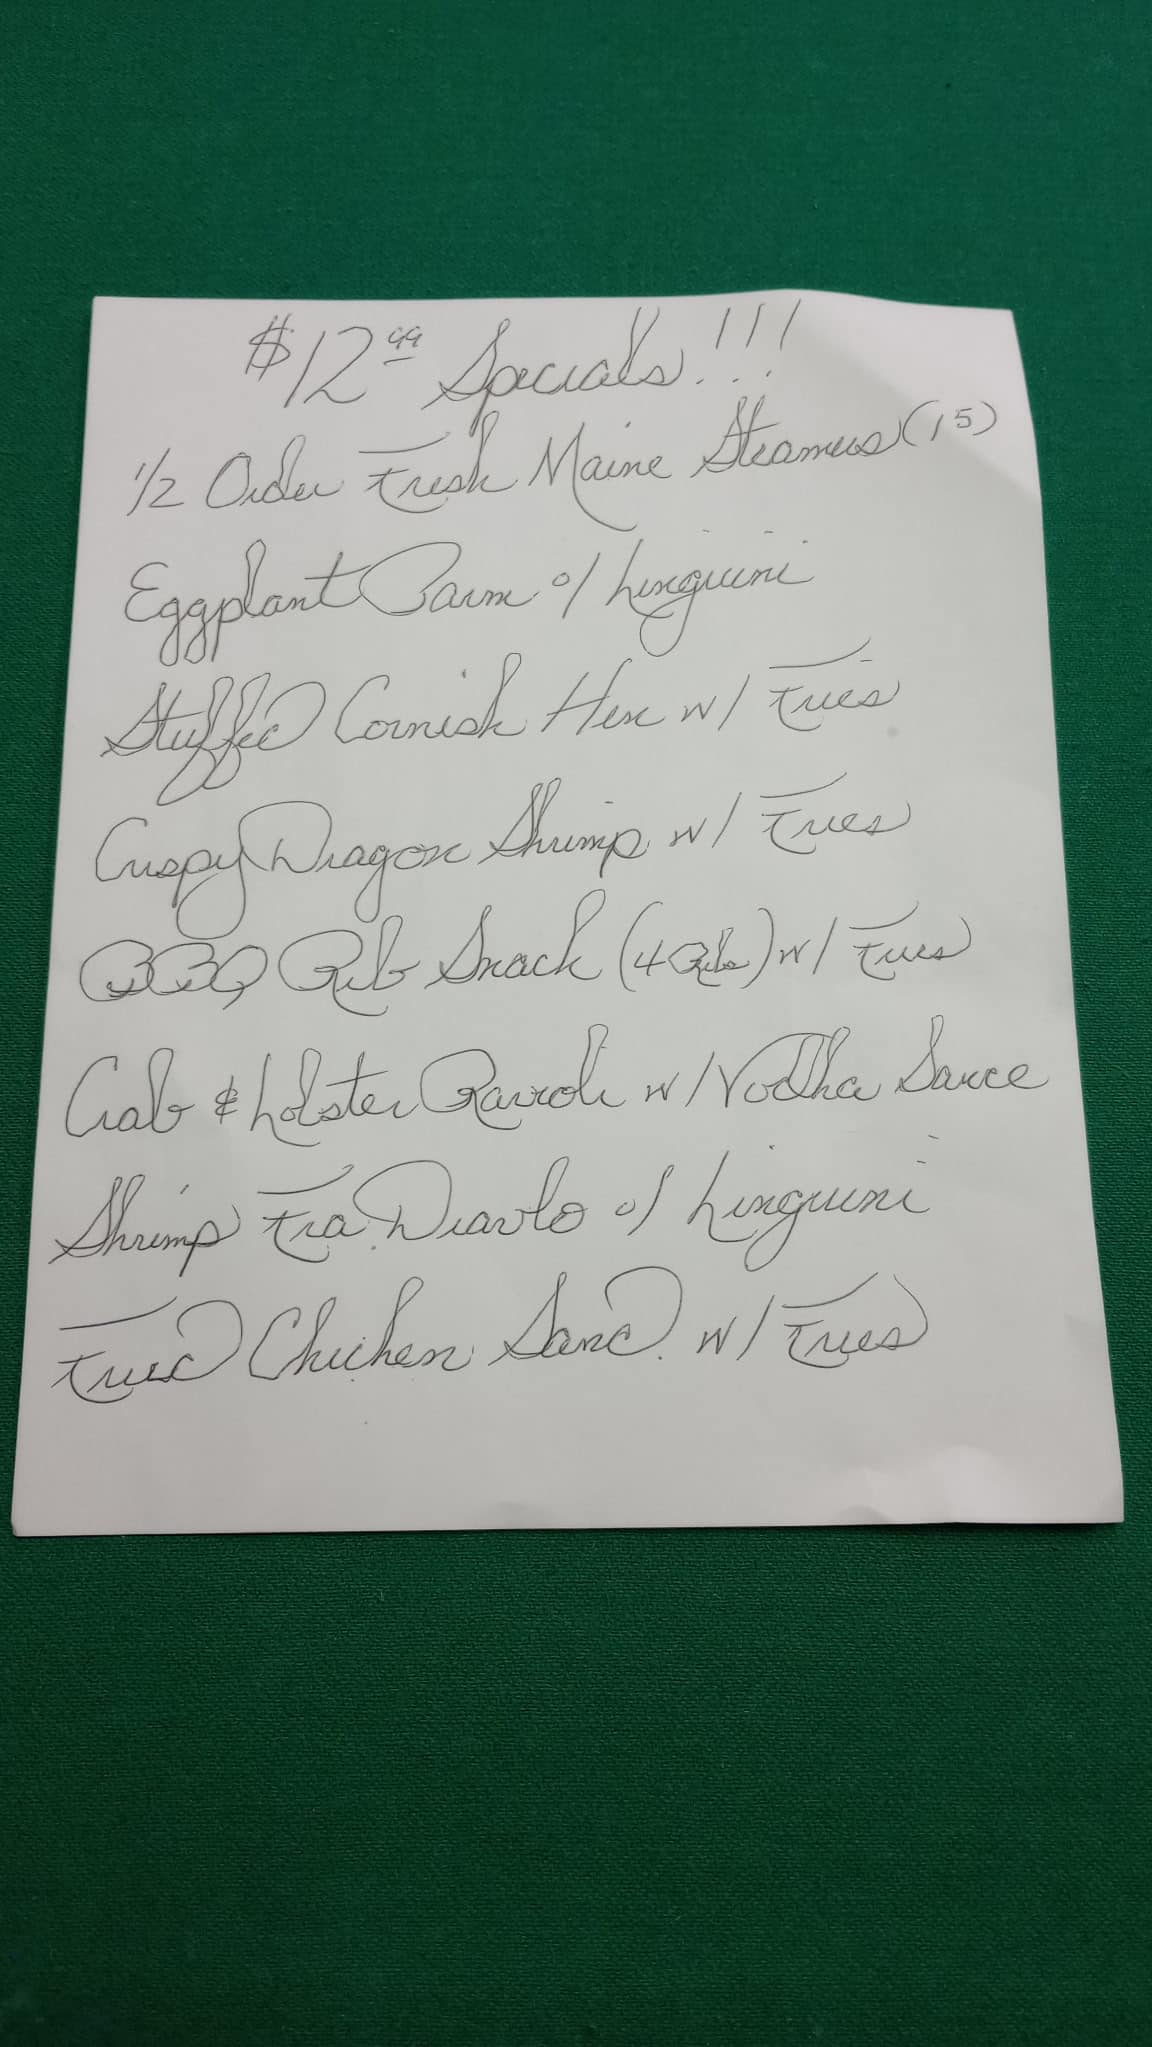 $12.99 Specials!!!
1/2 Order Fresh Maine Steamers (15)
Eggplant Parm o/ Linguini
Stuffed Cornish Hen w/ Fries
Crispy Dragon Shrimp w/ Fries
BBQ Rib Snack (4 Ribs) w/ Fries
Crab & Lobster Ravioli w/ Vodka Sauce
Shrimp Fra Diavlo o/ Linguini
Fried Chicken Sand. w/ Fries